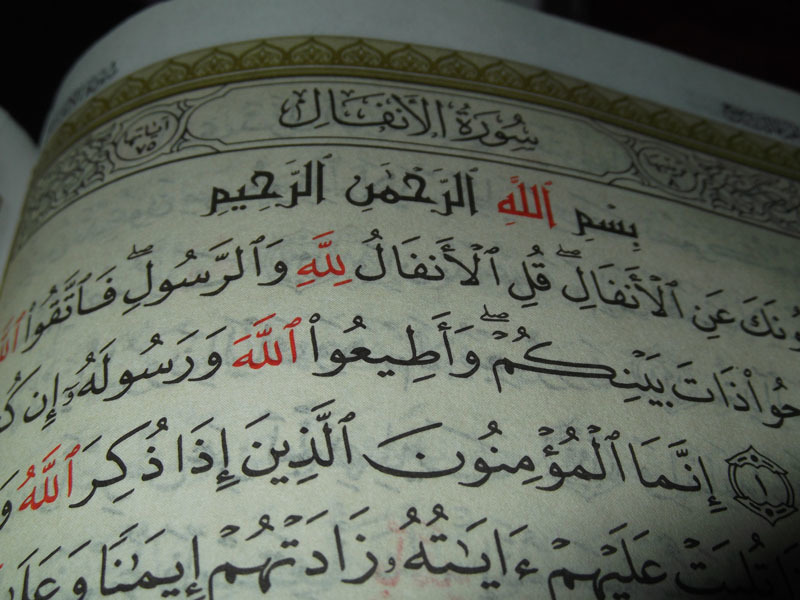 سُورَةُ الأَنفَالِ
آيَاتُهَا ٧٥
بِسْمِ ٱللَّهِ ٱلرَّحْمَٰنِ ٱلرَّحِيمِ
عَنِ ٱلْأَنفَالِ ۖ قُلِ ٱلْأَنفَالُ لِلَّهِ وَٱلرَّسُولِ ۖ فَٱتَّقُوا۟
ذَاتَ بَيْنِكُمْ ۖ وَأَطِيعُوا۟ ٱللَّهَ وَرَسُولَهُۥٓ إِن
١ إِنَّمَا ٱلْمُؤْمِنُونَ ٱلَّذِينَ إِذَا ذُكِرَ ٱللَّهُ
تُلِيَتْ عَلَيْهِمْ ءَايَٰتُهُۥ زَادَتْهُمْ إِيمَٰنًا